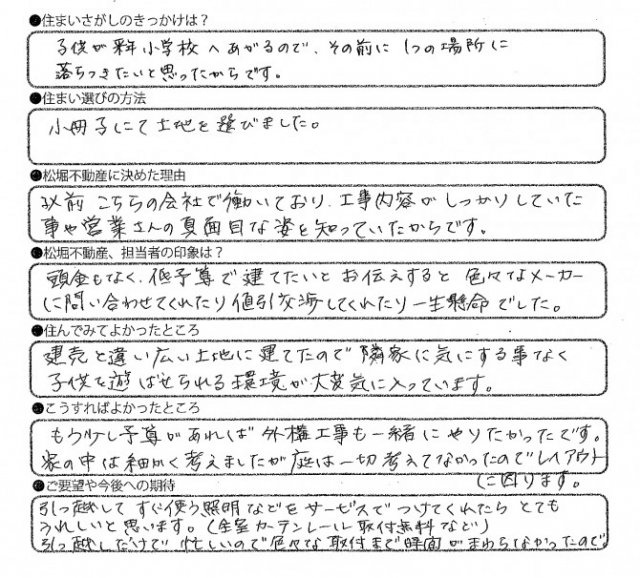 ●住まいさがしのきっかけは？
子供が来年小学校へあがるので、その前に1つの場所に
落ちつきたいと思ったからです。
●住まい選びの方法
小冊子にて土地を選びました。
●松堀不動産に決めた理由
以前こちらの会社で働いており、工事内容がしっかりしていた
事や営業さんの真面目な姿を知っていたからです。
●松堀不動産、担当者の印象は？
頭金もなく、低予算で建てたいとお伝えすると色々なメーカー
に問い合わせてくれたり値引交渉してくれたり一生懸命でした。
●住んでみてよかったところ
建売と違い広い土地に建てたので隣家に気にする事なく
子供を遊ばせられる環境が大変気に入っています。
●こうすればよかったところ
もう少し予算があれば外構工事も一緒にやりたかったです。
家の中は細かく考えましたが庭は一切考えてなかったのでレイアウト
に困ります。
●ご要望や今後への期待
引っ越してすぐ使う照明などをサービスでつけてくれたらとても
うれしいと思います。（全室カーテンレール取付無料など）
引っ越しだけで忙しいので色々な取付まで時間がまわらなかったので。